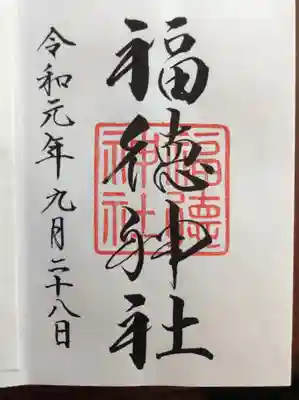 福徳神社
福德神社
令和元年九月二十八日